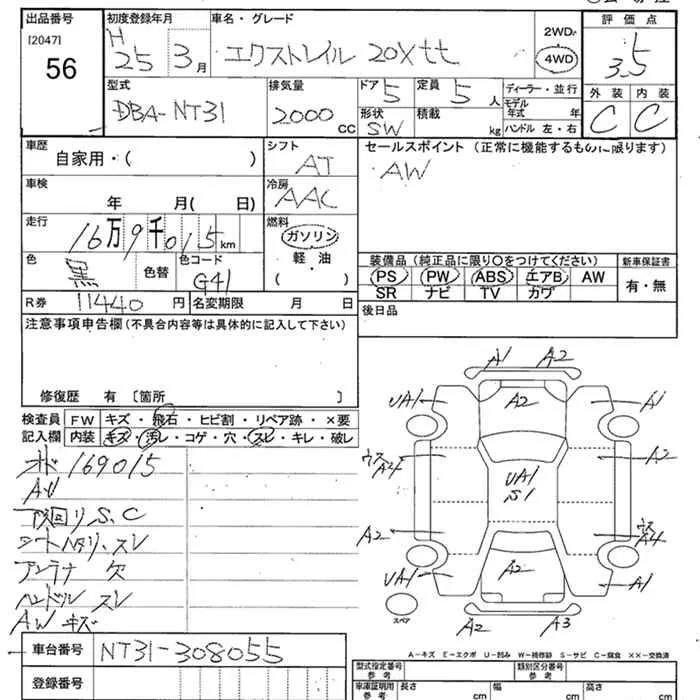 出品番号
[2047]
56
初度登録年月
H
25 3月
車名・グレード
エクストレイル 20Xtt
2WD
4WD
評価点
3.5
外装 内装
C C
型式
DBA-NT31
排気量
2000 CC
ドア 5
定員 5 人
形状 SW
積載 kg
ディーラー・並行
モデル年式 年
ハンドル 左・右
車歴
自家用・( )
シフト
AT
セールスポイント(正常に機能するものに限ります)
AW
車検
年 月( 日)
冷房
AAC
走行
16万9千015km
燃料
ガソリン
軽・油
( )
色
黒
色替
色コード
G41
装備品(純正品に限り〇をつけてください)
新車保証書
PS PW ABS エアB AW
SR ナビ TV カワ
有・無
R券 11440円
名変期限 月 日
後日品
注意事項申告欄(不具合内容等は具体的に記入して下さい)
修復歴 有 〔箇所 〕
検査員
記入欄
FW キズ・飛石・ヒビ割・リペア跡・×要
内装 キズ・汚レ・コゲ・穴・スレ・キレ・破レ
オド 169015
AV
下回リ S、C
シートヘタリ、スレ
アンテナ 欠
ハンドル スレ
AW キズ
A1 A2
UA1 A2 A1
ウスA4 UA1 S1 A2
A2 ウスA4
UA1 A2 A1
スペア
A2 A3
A-キズ E-エクボ U-凹み W-補修跡 S-サビ C-腐食 ××-交換済
車台番号 NT31-308055
登録番号
型式指定番号
参考
類別区分番号
参考
車庫証明用
参考
長さ cm
幅 cm
高さ cm